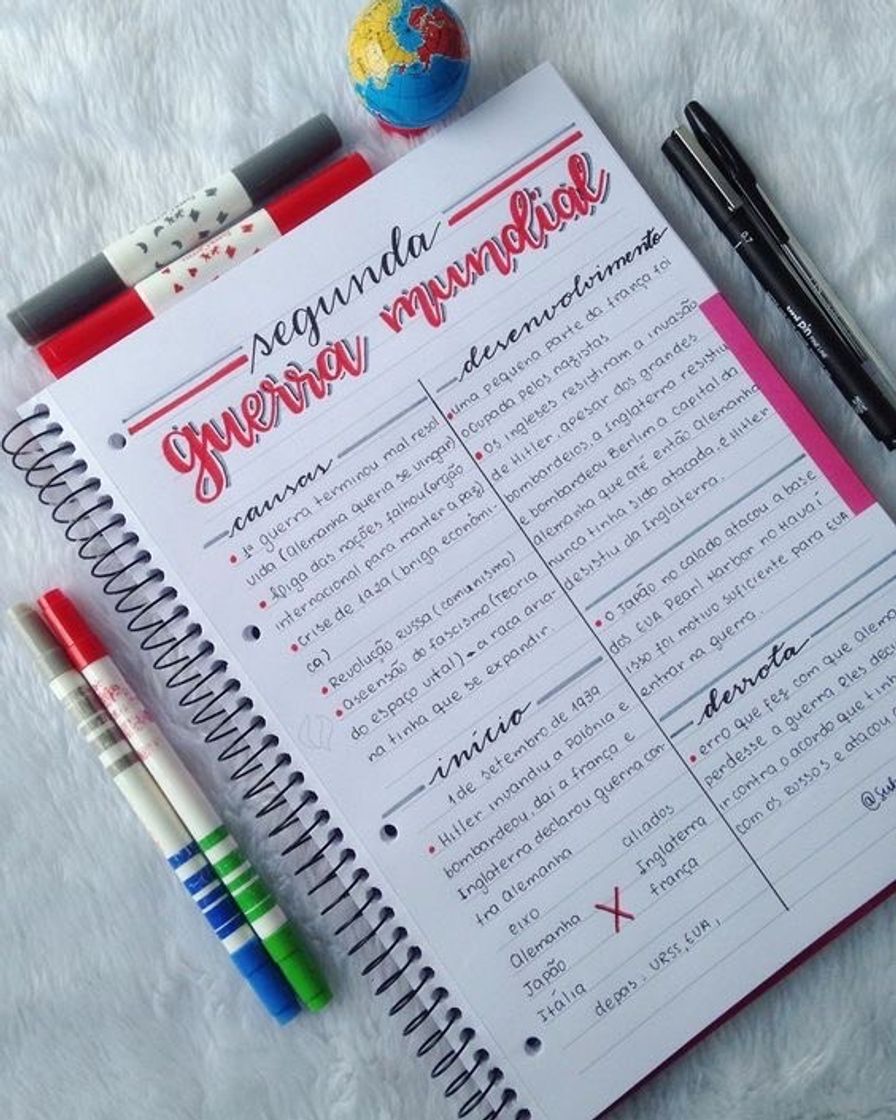 segunda
guerra mundial
causas
• 1ª guerra terminou mal resol
vida (Alemanha queria se vingar)
• A liga das nações falhou (orgão
internacional para manter a paz)
• crise de 1929 (briga econômi-
ca)
• Revolução Russa (comunismo)
• Ascensão do fascismo (teoria
do espaço vital) → a raça aria-
na tinha que se expandir.
início
1 de setembro de 1939
• Hitler invandiu a Polônia e
bombardeou, daí a frança e
Inglaterra declarou guerra con-
tra Alemanha
eixo
aliados
Alemanha X Inglaterra
Japão
frança
Itália
depos: URSS, EUA,
desenvolvimento
• uma pequena parte da frança foi
ocupada pelos nazistas
• Os ingleses resistiram a invasão
de Hitler, apesar dos grandes
bombardeios, a Inglaterra resistiu
e bombardeou Berlim a capital da
Alemanha que até então Alemanha
nunca tinha sido atacada, e Hitler
desistiu da Inglaterra.
• O Japão no calado atacou a base
dos EUA Pearl Harbor no Havaí
isso foi motivo suficiente para EUA
entrar na guerra.
derrota
• erro que fez com que Alem
perdesse a guerra Eles deci
ir contra o acordo que tin
com os Russos e atacou